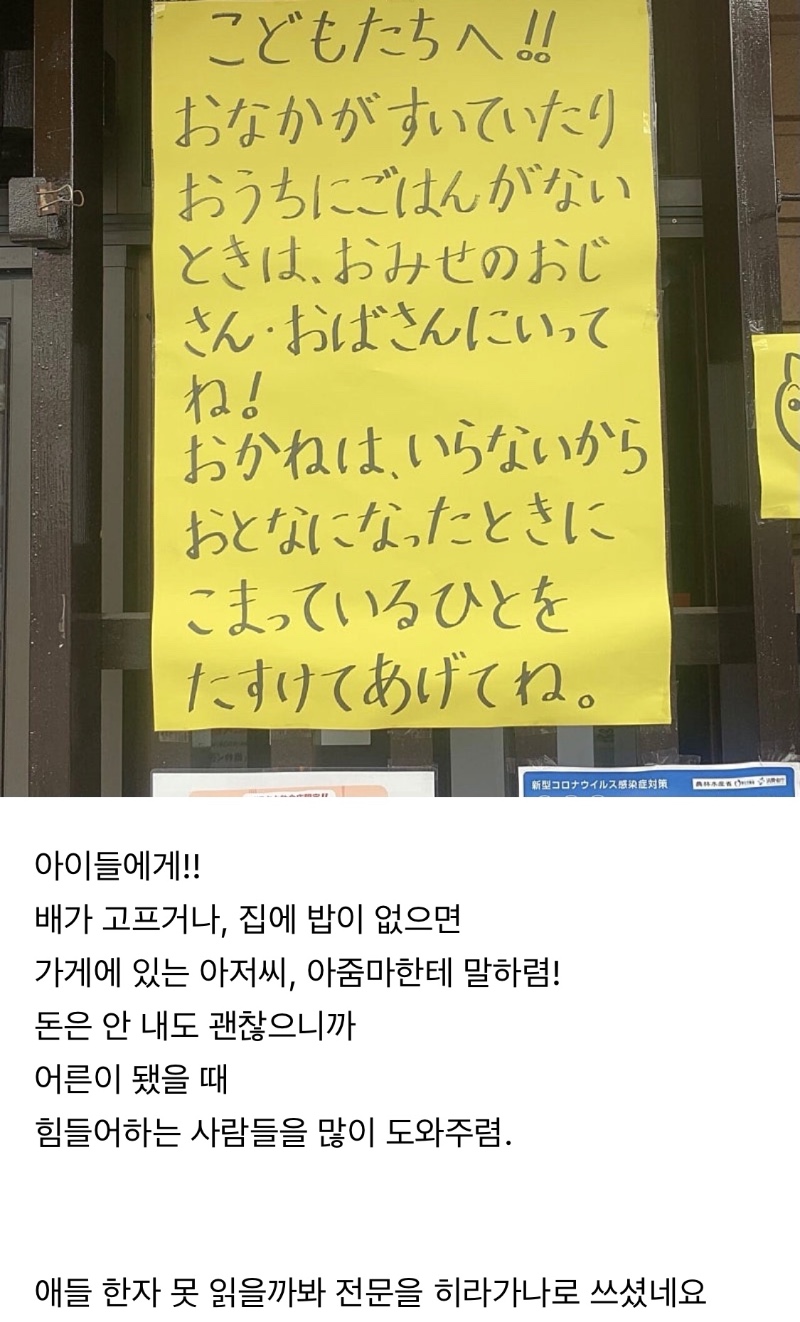 こどもたちへ!!
おなかがすいていたり
おうちにごはんがない
ときは、おみせのおじ
さん・おばさんにいって
ね!
おかねは、いらないから
おとなになったときに
こまっているひとを
たすけてあげてね。
新型コロナウイルス感染症対策
農林水産省
아이들에게!!
배가 고프거나, 집에 밥이 없으면
가게에 있는 아저씨, 아줌마한테 말하렴!
돈은 안 내도 괜찮으니까
어른이 됐을 때
힘들어하는 사람들을 많이 도와주렴.
애들 한자 못 읽을까봐 전문을 히라가나로 쓰셨네요